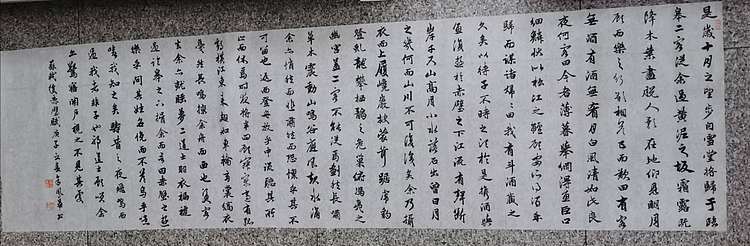 是歲十月之望步自雪堂將歸于臨
皋二客從余過黃泥之坂霜露既
降木葉盡脫人影在地仰見明月
顧而樂之行歌相答已而歎曰有客
無酒有酒無肴月白風清如此良
夜何客曰今者薄暮舉網得魚巨口
細鱗狀如松江之鱸顧安所得酒乎
歸而謀諸婦婦曰我有斗酒藏之
久矣以待子不時之需於是攜酒與
魚復遊於赤壁之下江流有聲斷
岸千尺山高月小水落石出曾日月
之幾何而山川不可復識矣余乃攝
衣而上履巉巖披蒙茸踞虎豹
登虬龍攀棲鶻之危巢俯馮夷之
幽宮蓋二客不能從焉劃然長嘯
草木震動山鳴谷應風起水湧
余亦悄然而悲肅然而恐凜乎其不
可留也返而登舟放乎中流聽其所
止而休焉時夜將半四顧寂寥適有孤
鶴橫江東來翅如車輪玄裳縞衣
戛然長鳴掠余舟而西也須臾客
去余亦就睡夢一道士羽衣蹁躚
過臨皋之下揖余而言曰赤壁之遊
樂乎問其姓名俛而不答嗚呼噫
嘻我知之矣疇昔之夜飛鳴而
過我者非子也邪道士顧笑余
亦驚寤開戶視之不見其處
蘇軾後赤壁賦庚子